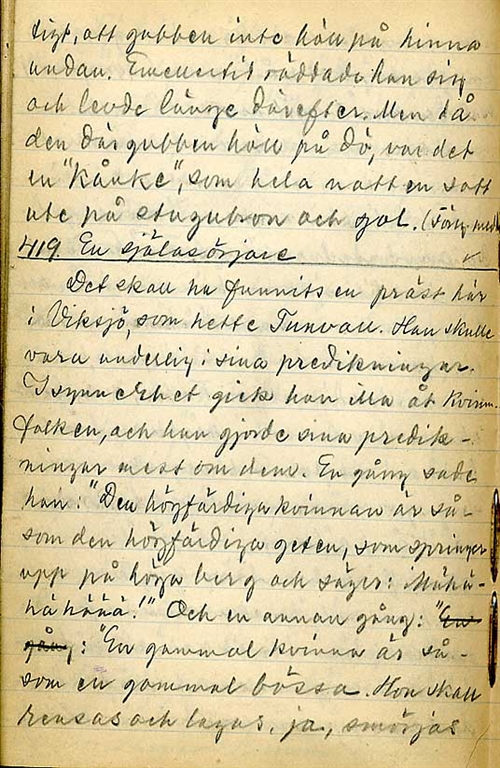 ligt, att gubben inte höll på hinna
undan. Emellertid räddade han sig
och levde länge därefter. Men då
den där gubben höll på dö, var det
en "kånke", som hela natten satt
ute på stugubron och gol. (Förg. medd.
419. En själasörjare
Det skall ha funnits en präst här
i Viksjö, som hette Tunvall. Han skulle
vara underlig i sina predikningar.
I synnerhet gick han illa åt kvinn-
folken, och han gjorde sina predik-
ningar mest om dem. En gång sade
han: "Den högfärdiga kvinnan är så-
som den högfärdiga geten, som springer
upp på höga berg och säger: Mähä-
hähäää!" Och en annan gång: "En
gång: "En gammal kvinna är så-
som en gammal bössa. Hon skall
rensas och lagas, ja, smörjas